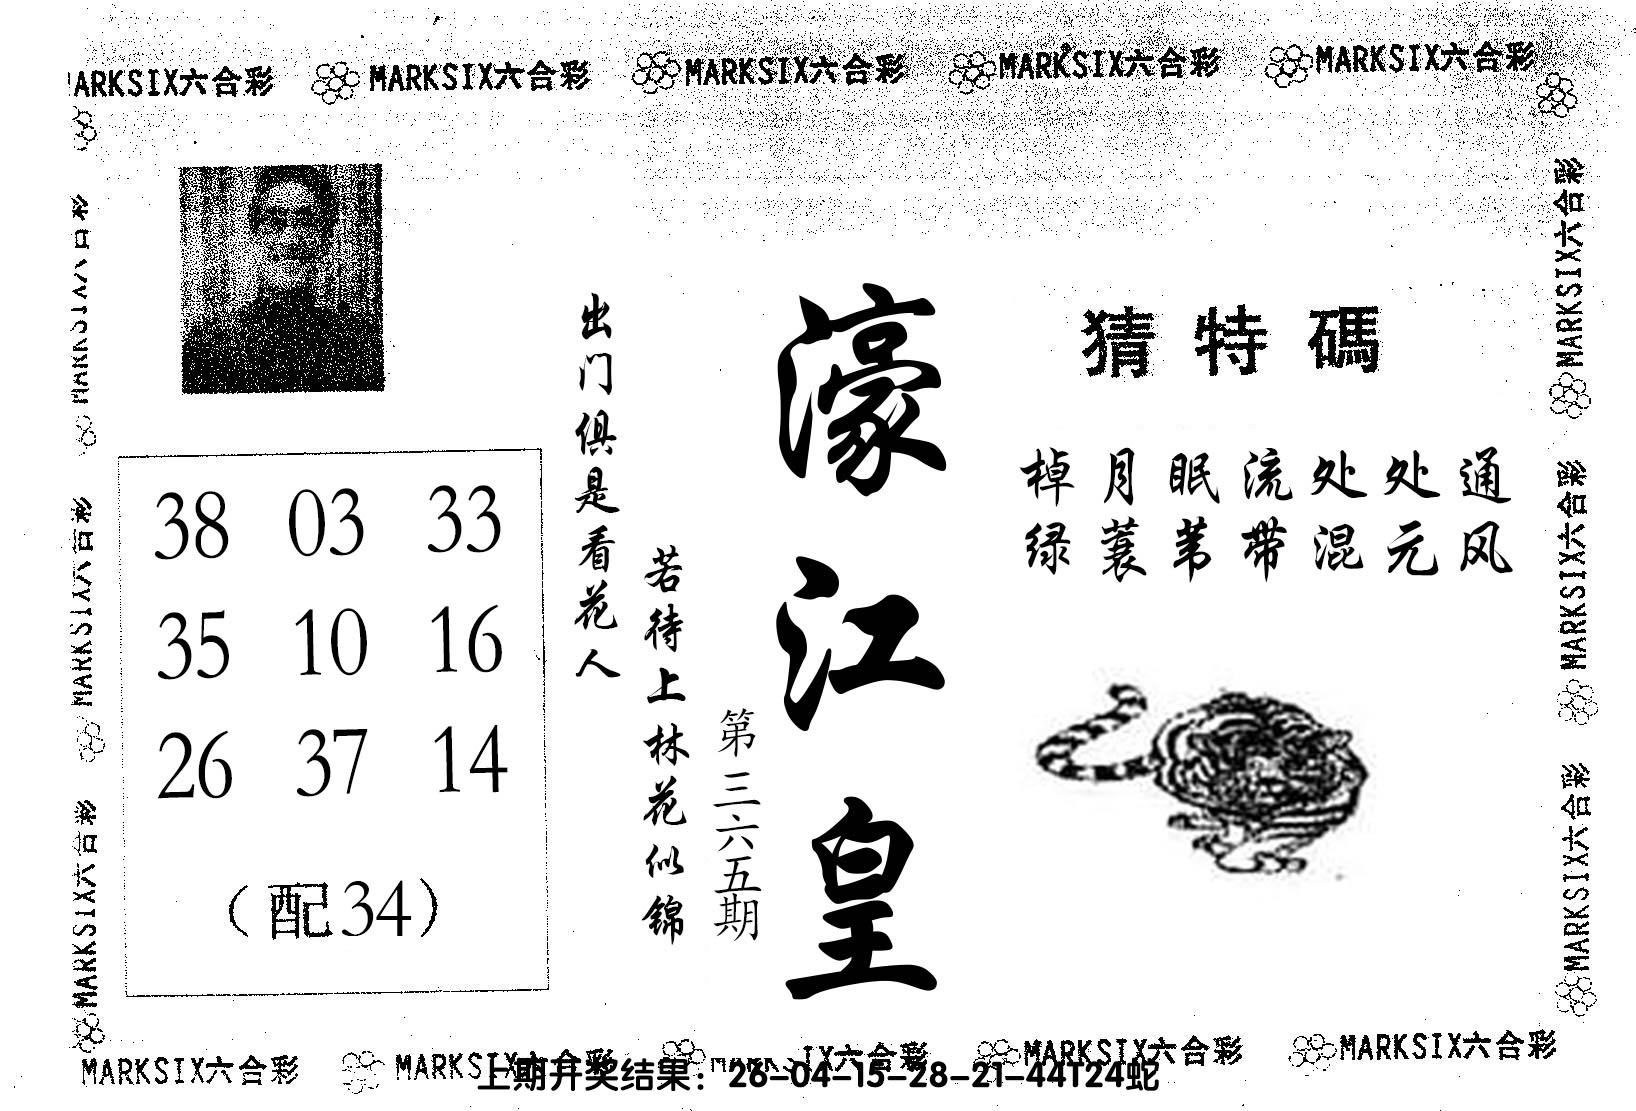 MARKSIX六合彩 MARKSIX六合彩 MARKSIX六合彩 MARKSIX六合彩 MARKSIX六合彩
MARKSIX六合彩
MARKSIX六合彩
MARKSIX六合彩
MARKSIX六合彩
MARKSIX六合彩
MARKSIX六合彩
濠江皇
第三六五期
若待上林花似锦
出门俱是看花人
猜特碼
棹月眠流处处通
绿蓑苇带混元风
38 03 33
35 10 16
26 37 14
（配34）
MARKSIX六合彩 MARKSIX六合彩 MARKSIX六合彩 MARKSIX六合彩 MARKSIX六合彩
上期开奖结果：26-04-15-28-21-44T24蛇